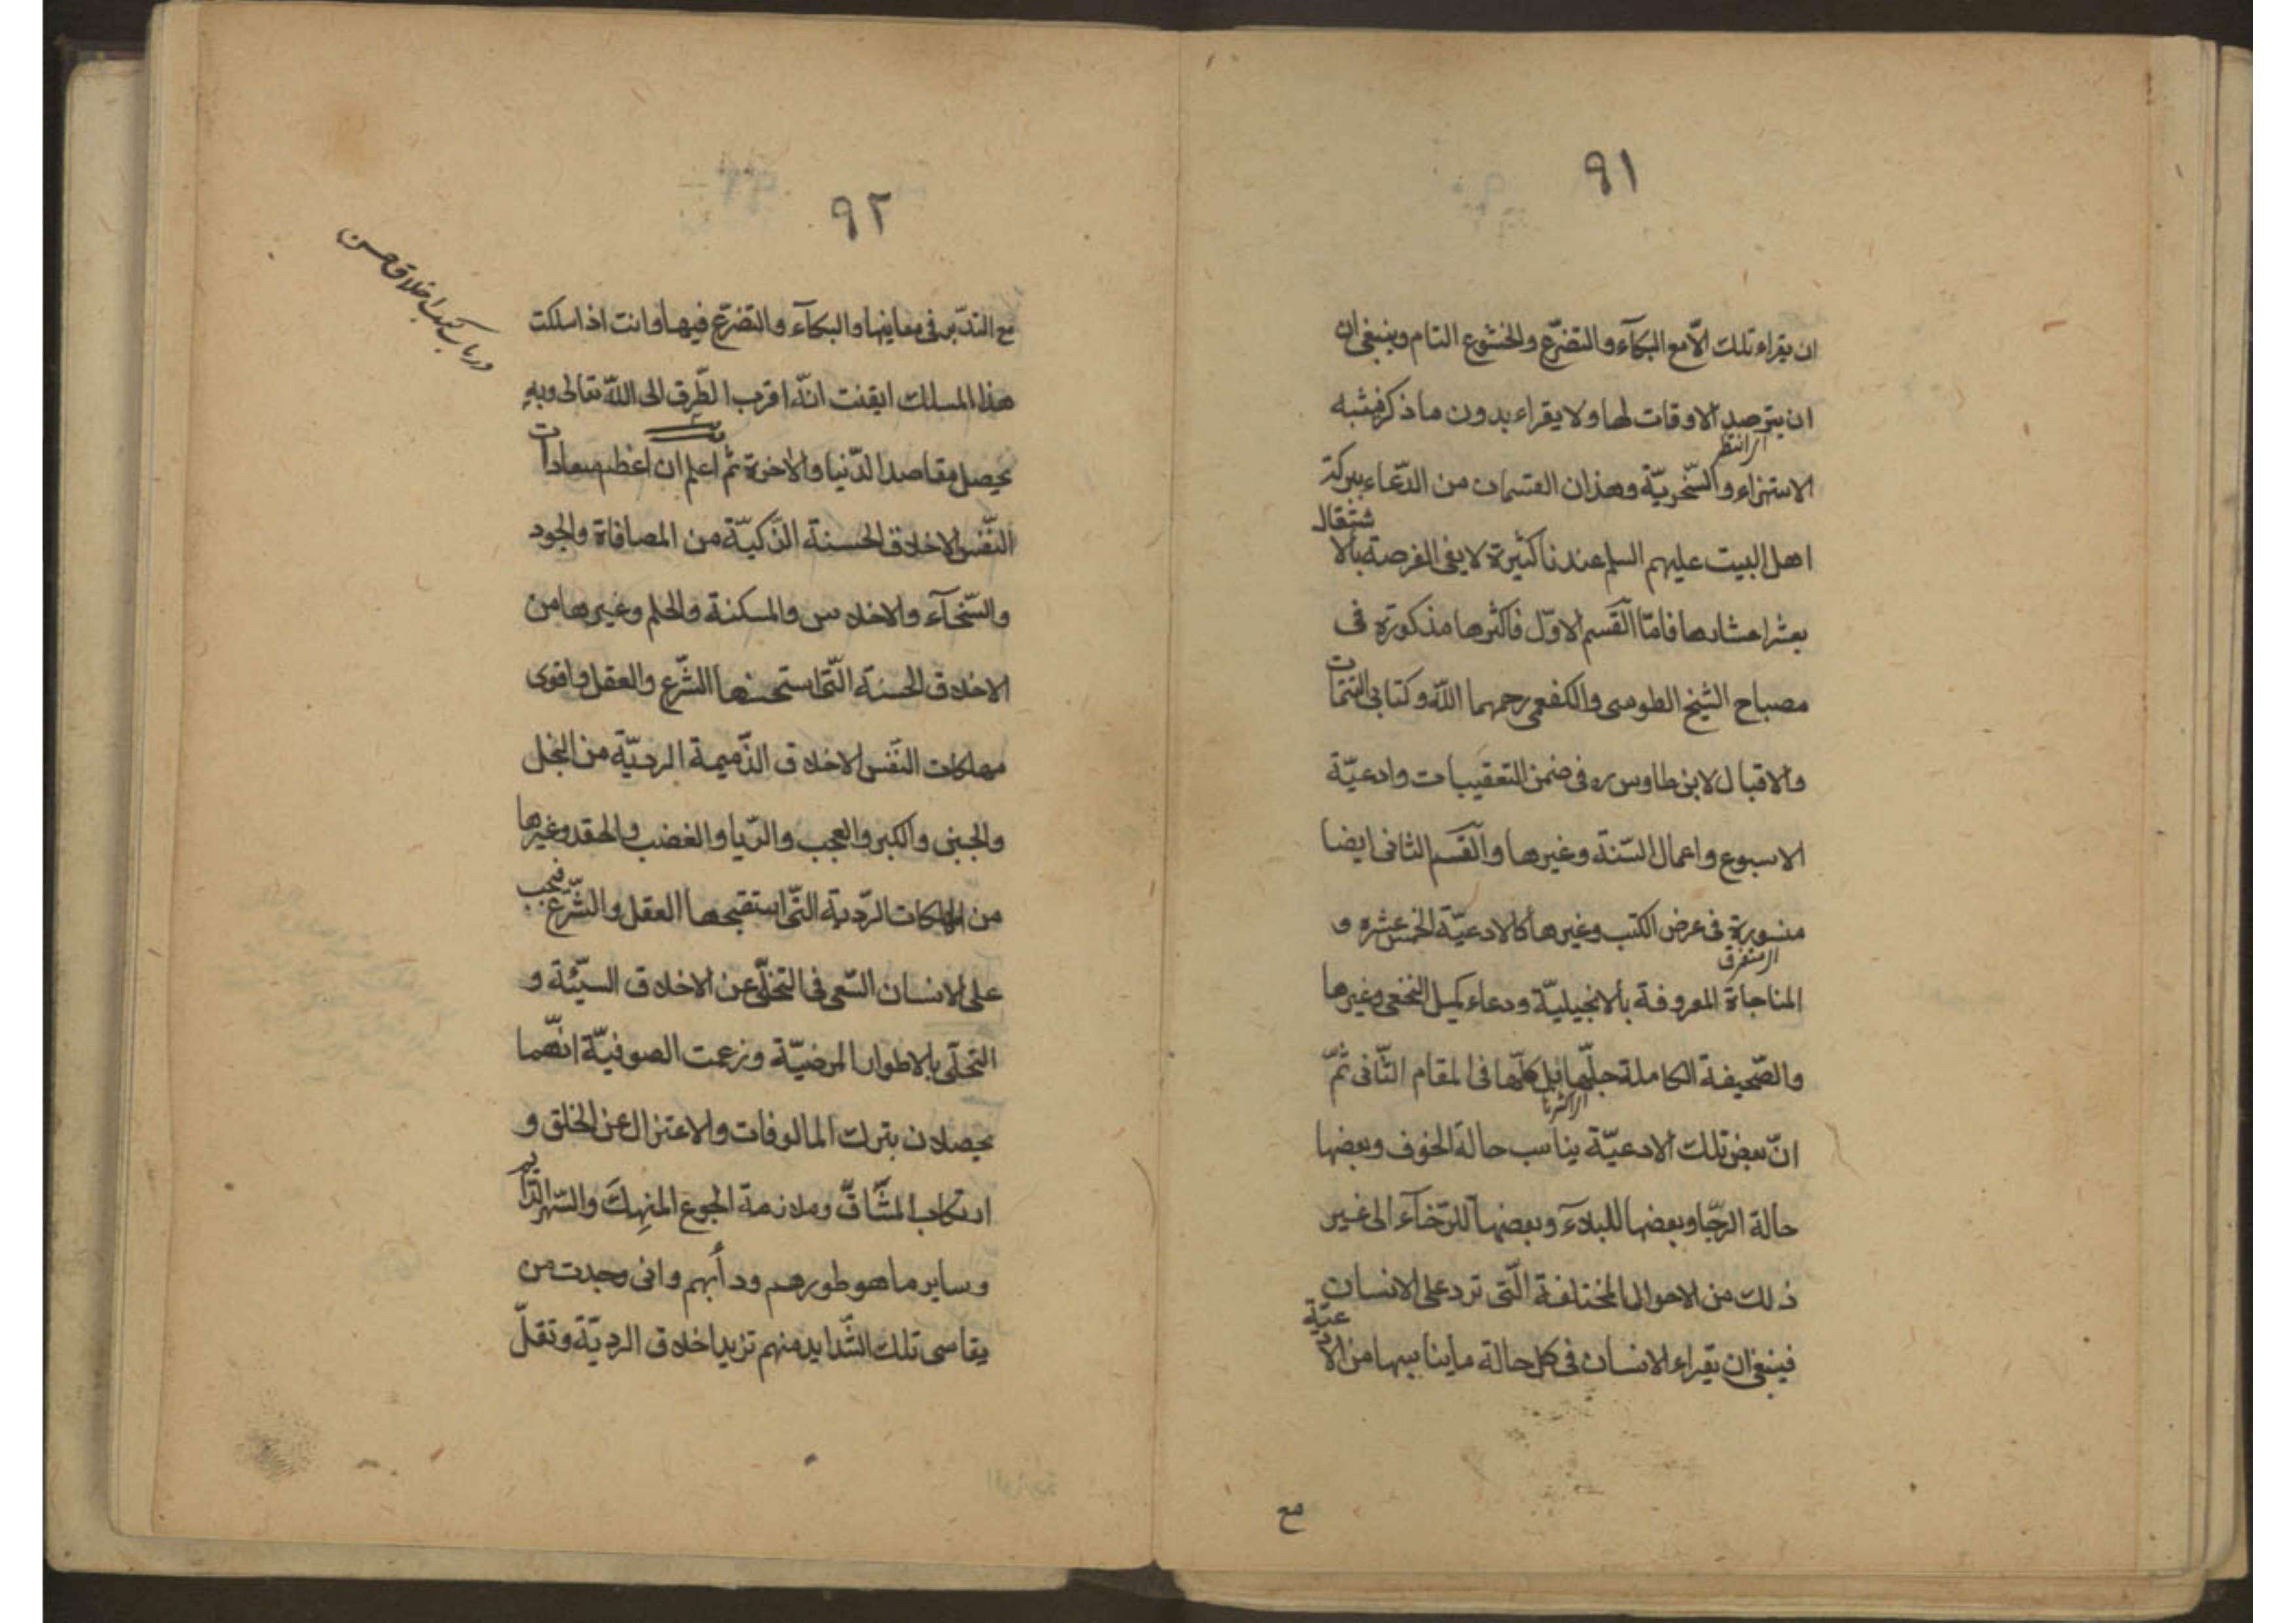 ٩١
ان يقراء تلك الّا مع البكآء والتضرّع والخشوع التام وينبغى ان
ان يترصد الاوقات لها ولا يقراء بدون ما ذكر فيشبه
اى انتظر
الاستهزاء والسّخريّة وهذان القسمان من الدّعاء ببركة
اهل البيت عليهم السلم عندنا كثيرة لا يفى الفرصة بالاشتغال
بعشر اعشارها فامّا القسم الاوّل فاكثرها مذكورة فى
مصباح الشيخ الطوسى والكفعمى رحمهما اللّه وكتابى التتمات
والاقبال لابن طاوس ره فى ضمن التعقيبات وادعيّة
الاسبوع واعمال السّنة وغيرها والقسم الثانى ايضا
منسورة فى عرض الكتب وغيرها كالادعيّة الخمس عشره و
اى متفرق
المناجاة المعروفة بالانجيليّة ودعاء كميل النخعى وغيرها
والصّحيفة الكاملة جلّها بل كلّها فى المقام الثّانى ثمّ
اى اكثرها
انّ بعض تلك الادعيّة يناسب حالة الخوف وبعضها
حالة الرجّا وبعضها للبلاء وبعضها للرّخآء الى غير
ذلك من الاحوال المختلفة الّتى ترد على الانسان
فينبغى ان يقراء الانسان فى كل حالة ما يناسبها من الادعيّة
مع
٩٢
مع التدبّر فى معانيها والبكآء والتضرّع فيها وانت اذا سلكت
هذا المسلك ايقنت انّه اقرب الطّرق الى اللّه تعالى وبه
يحصل مقاصد الدّنيا والاخرة ثمّ اعلم ان اعظم سعادات
النّفس الاخلاق الحسنة الذكيّة من المصافاة والجود
والسّخآء والاخلاص والمسكنة والحلم وغيرها من
الاخلاق الحسنة الّتى استحسنها الشّرع والعقل واقوى
مهلكات النّفس الاخلاق الذّميمة الرديّة من البخل
والجبن والكبر والعجب والرّيا والغضب والحقد وغيرها
من الملكات الرّدية الّتى استقبحها العقل والشّرع فيجب
على الانسان السّعى فى التخلّى عن الاخلاق السيّئة و
التحلّى بالاطوار المرضيّة وزعمت الصوفيّة انّهما
يحصلان بترك المالوفات والاعتزال عن الخلق و
ارتكاب المشّاقّ وملازمة الجوع المنهك والسّهر الدّايم
وساير ما هو طورهم ودأبهم وانى وجدت من
يقاسى تلك الشّدايد منهم تزيد اخلاق الرديّة وتقلّ
در بيان كسب اخلاق حسن